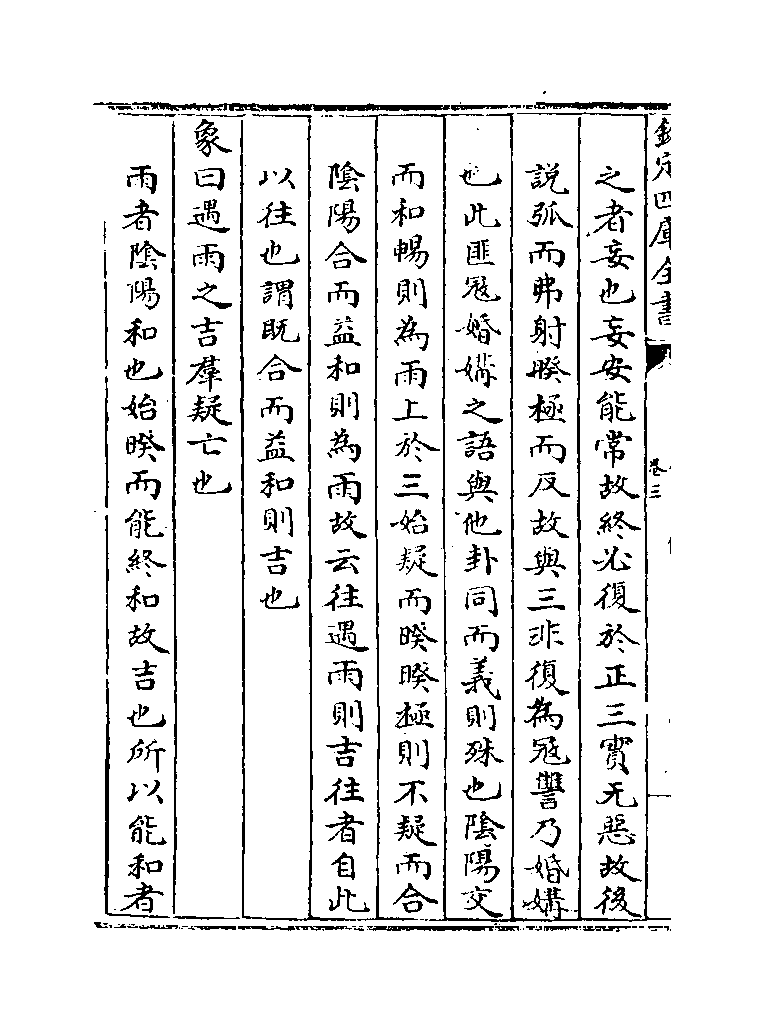 欽定四庫全書
卷三
之者妄也妄安能常故終必復於正三實无惡故後
說弧而弗射睽極而反故與三非復為冦讐乃婚媾
也此匪冦婚媾之語與他卦同而義則殊也陰陽交
而和暢則為雨上於三始疑而睽睽極則不疑而合
陰陽合而益和則為雨故云往遇雨則吉往者自此
以往也謂既合而益和則吉也
象曰遇雨之吉羣疑亡也
雨者陰陽和也始睽而能終和故吉也所以能和者